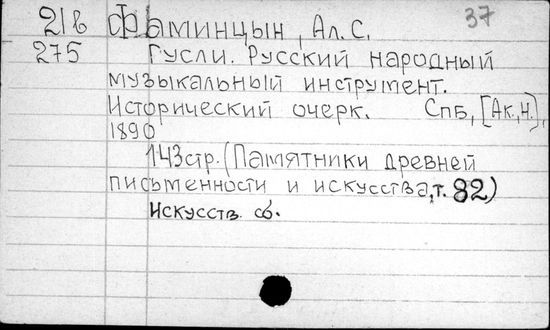 21в Фаминцын, Ал. С. 37
275 Гусли. Русский народный
музыкальный инструмент.
Исторический очерк. Спб, [Ак.,Н.),
1890
143стр. (Памятники древней
письменности и искусства, т. 82)
Искусств. сб.